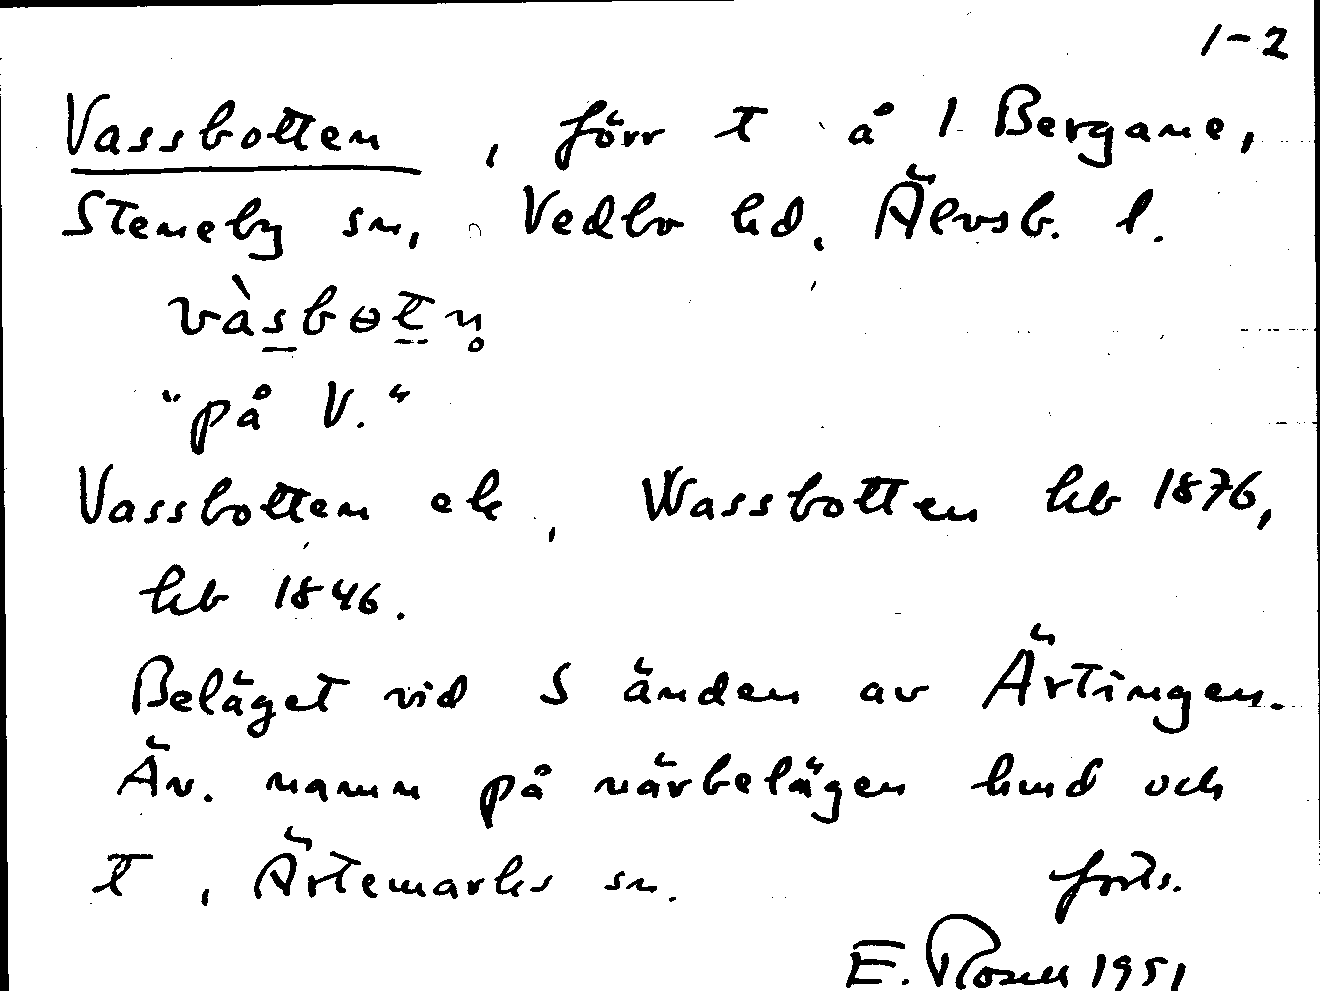 1-2
Vassbotten, förr t å 1 Bergane,
Steneby sn, Vedbo hd, Älvsb. l.
vàsbotn̥
"på V."
Vassbotten ek, Wassbotten hb 1876,
hb 1846.
Beläget vid S änden av Ärtingen.
Äv. namn på närbelägen hmd och
t, Ärtemarks sn. forts.
E. Rosell 1951